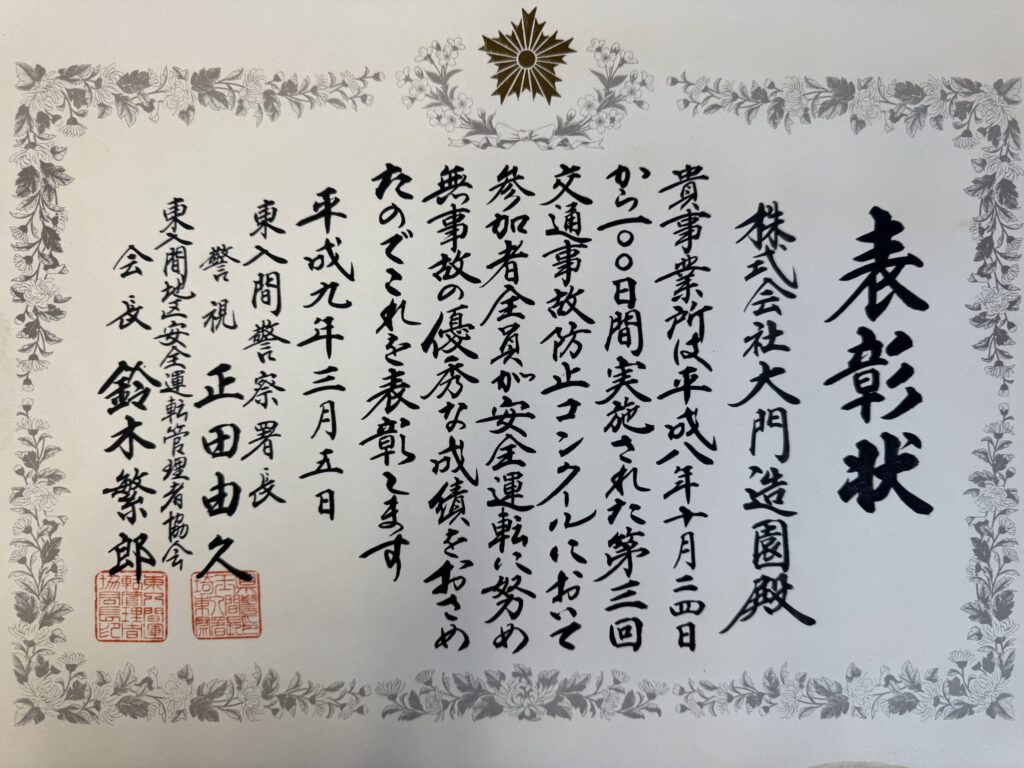 表彰状
株式会社大門造園殿
貴事業所は平成八年十月二四日
から一〇〇日間実施された第三回
交通事故防止コンクールにおいて
参加者全員が安全運転に努め
無事故の優秀な成績をおさめ
たのでこれを表彰します
平成九年三月五日
東入間警察署長
警視 正田由久
東入間地区安全運転管理者協会
会長 鈴木繁郎